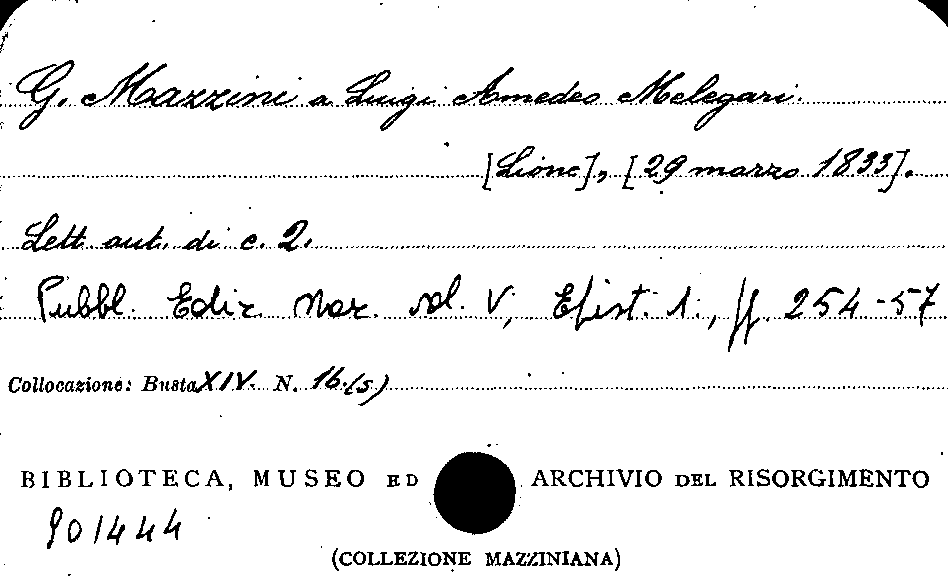 G. Mazzini a Luigi Amedeo Melegari.
[Lione], [29 marzo 1833].
Lett. aut. di c. 2.
Pubbl. Ediz. Naz. vol. V, Epist. 1., pp. 254-57
Collocazione: Busta XIV. N. 16.(5)
BIBLIOTECA, MUSEO ED ARCHIVIO DEL RISORGIMENTO
901444
(COLLEZIONE MAZZINIANA)